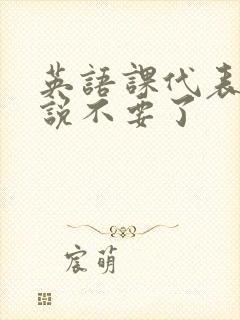 英語課代表
說不要了
宸萌